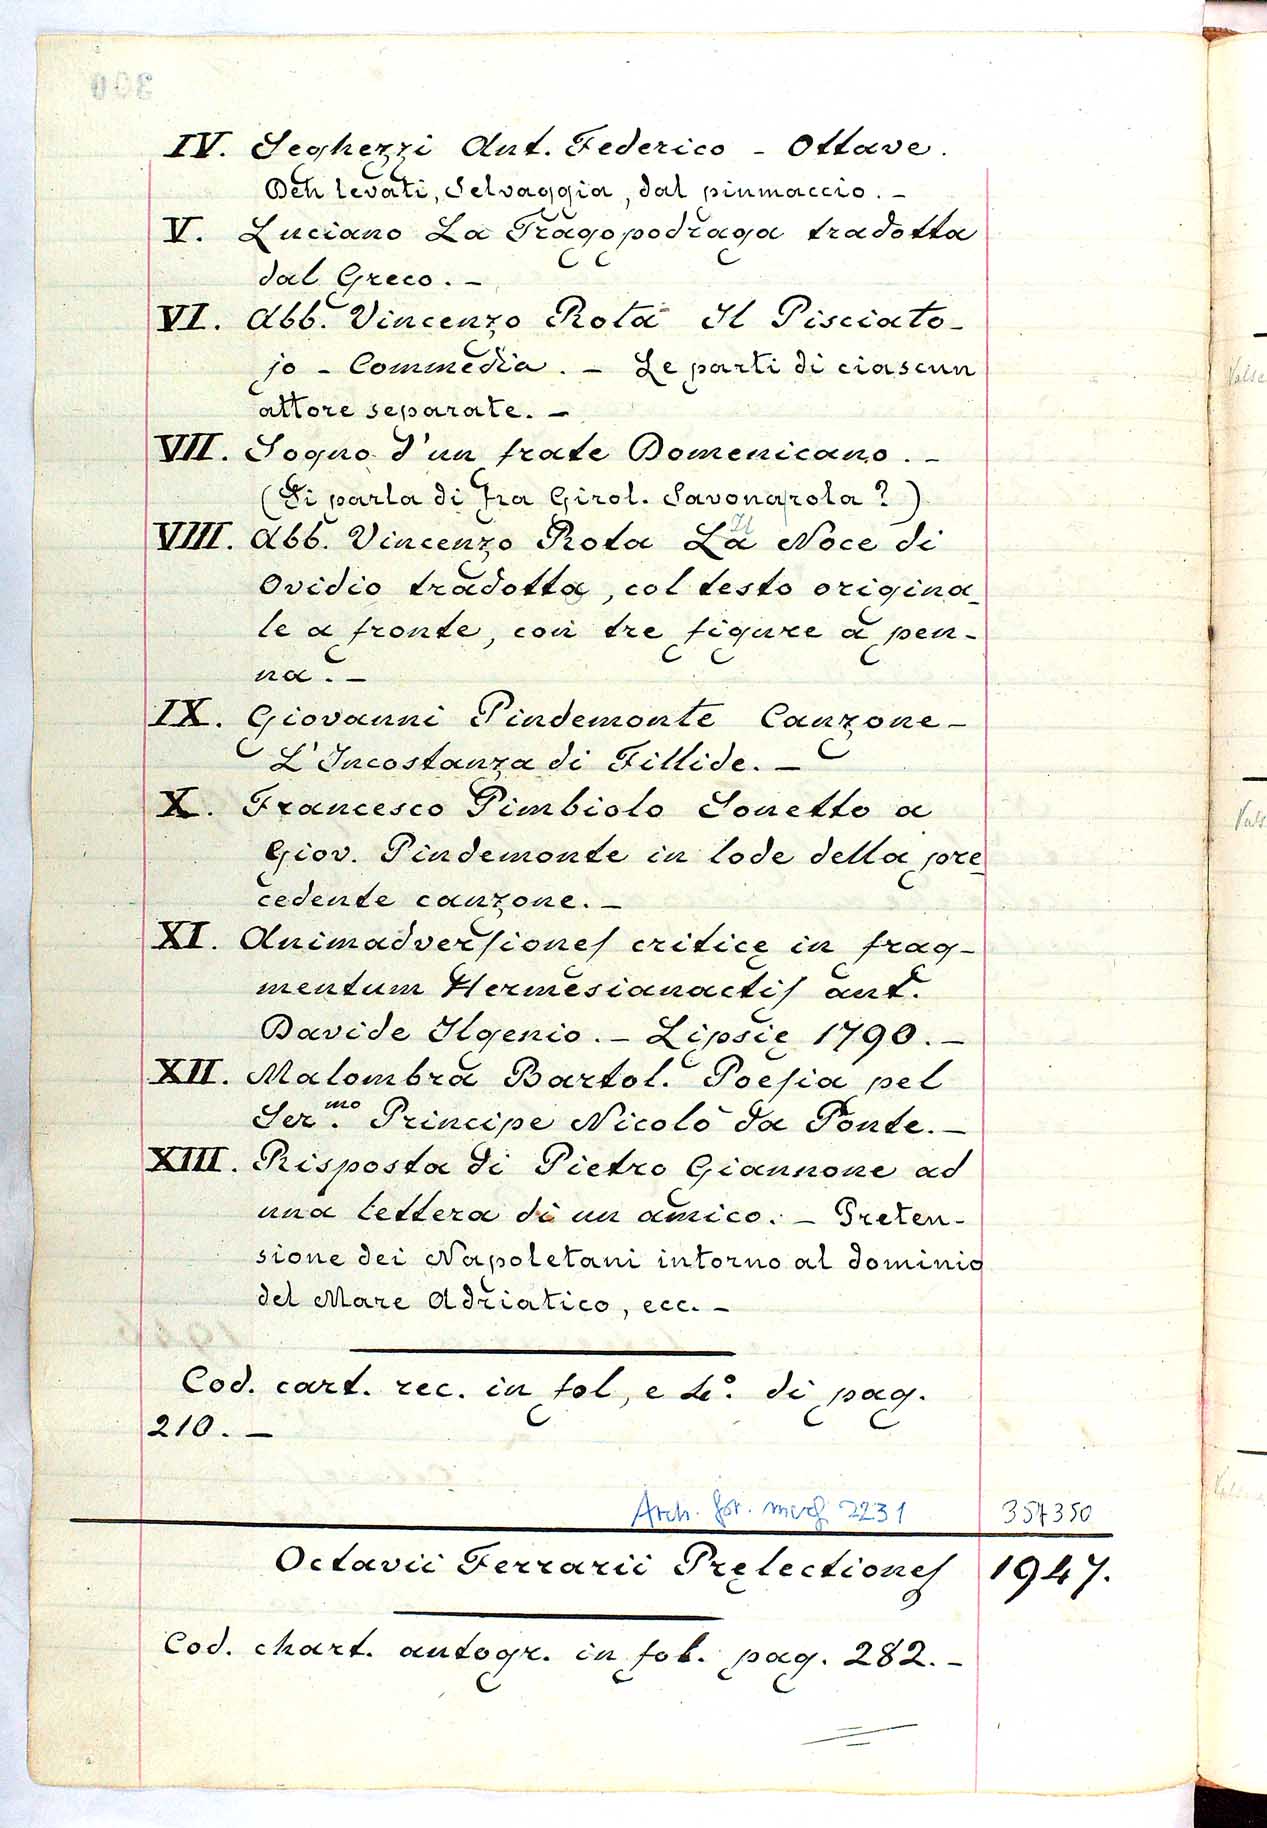 IV. Seghezzi Ant. Federico - Ottave.
Deh levati, Selvaggia, dal piumaccio. -
V. Luciano La Tragopodraga tradotta
dal Greco. -
VI. Abb. Vincenzo Rota Il Pisciato-
jo - Commedia. - Le parti di ciascun
attore separate. -
VII. Sogno d'un frate Domenicano. -
(Si parla di Fra Girol. Savonarola?)
VIII. Abb. Vincenzo Rota La Il Noce di
Ovidio tradotta, col testo origina-
le a fronte, con tre figure a pen-
na. -
IX. Giovanni Pindemonte Canzone -
L'Incostanza di Fillide. -
X. Francesco Pimbiolo Sonetto a
Giov. Pindemonte in lode della pre-
cedente canzone. -
XI. Animadverſioneſ criticę in frag-
mentum Hermesianactiſ aut.
Davide Ilgenio. - Lipsię 1790. -
XII. Malombra Bartol. Poeſia pel
Ser.mo Principe Nicolò da Ponte. -
XIII. Risposta di Pietro Giannone ad
una lettera di un amico. - Preten-
sione dei Napoletani intorno al dominio
del Mare Adriatico, ecc. -
Cod. cart. rec. in fol, e 4º. di pag.
210. -
Arch. 2231 357350
Octavii Ferrarii Prelectioneſ 1947.
Cod. chart. autogr. in fol. pag. 282. -